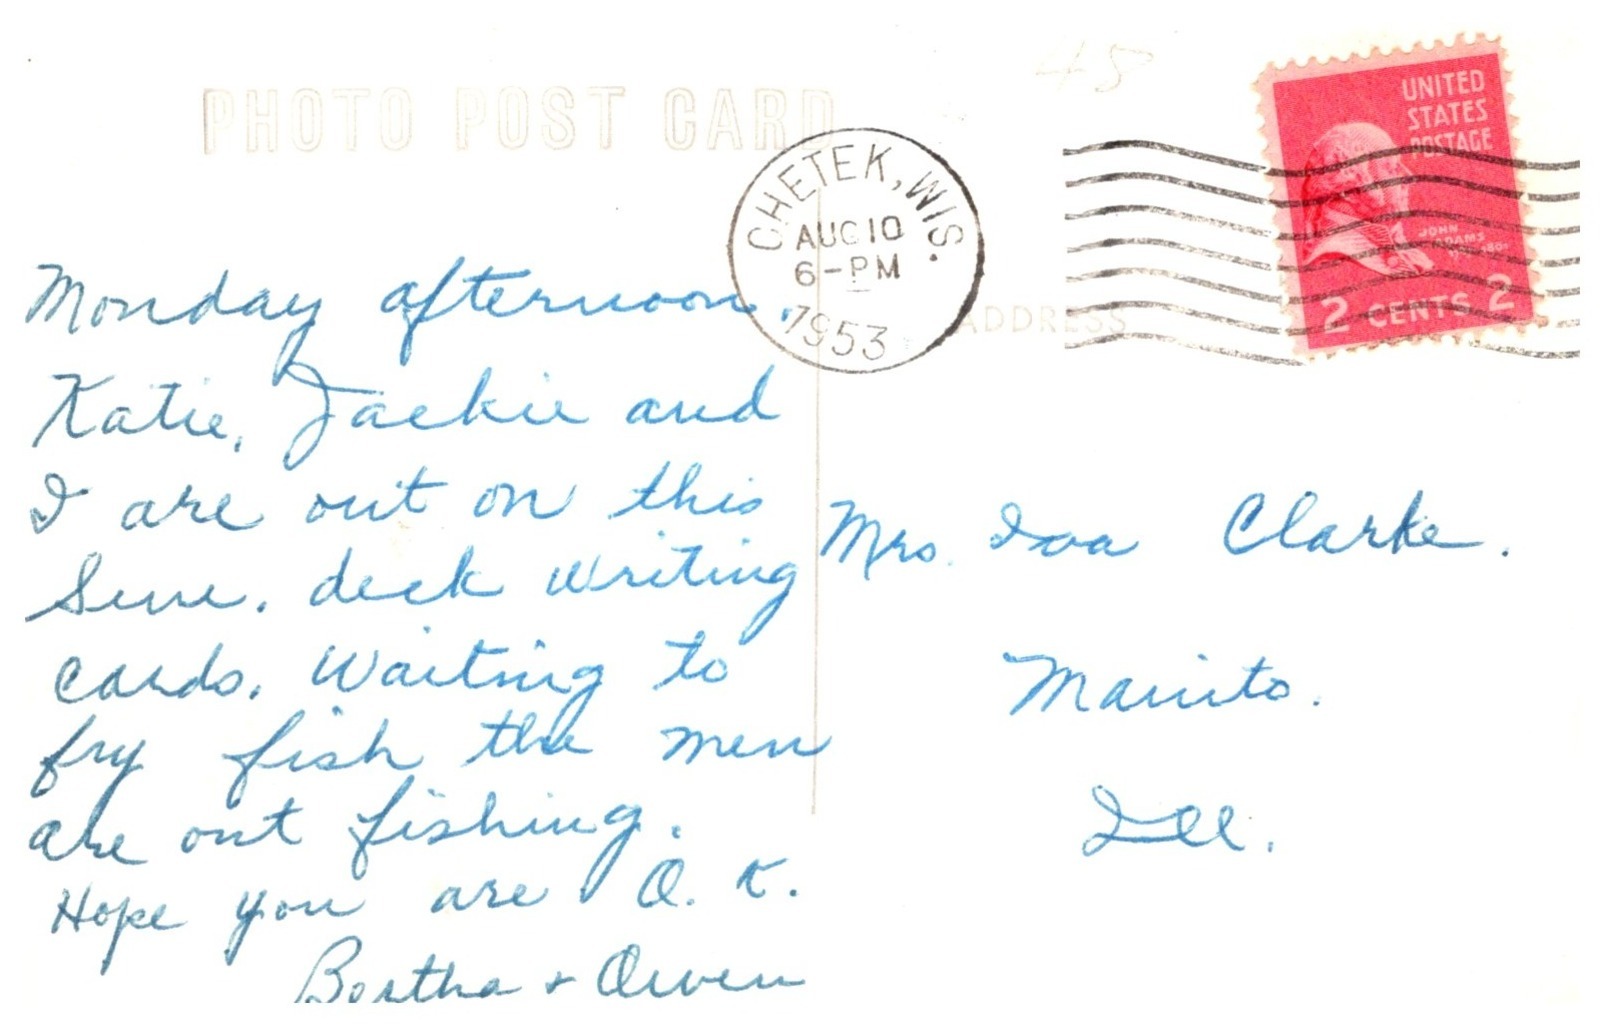 45
PHOTO POST CARD
UNITED
STATES
POSTAGE
JOHN
ADAMS
2 CENTS 2
CHETEK, WIS.
AUG 10
6-PM
1953
ADDRESS
Monday afternoon.
Katie, Jackie and
I are out on this
deck writing
cards. Waiting to
fry fish the men
are out fishing.
Hope you are O. K.
Bertha + Owen
Mrs. Iva Clarke.
Manito.
Ill.